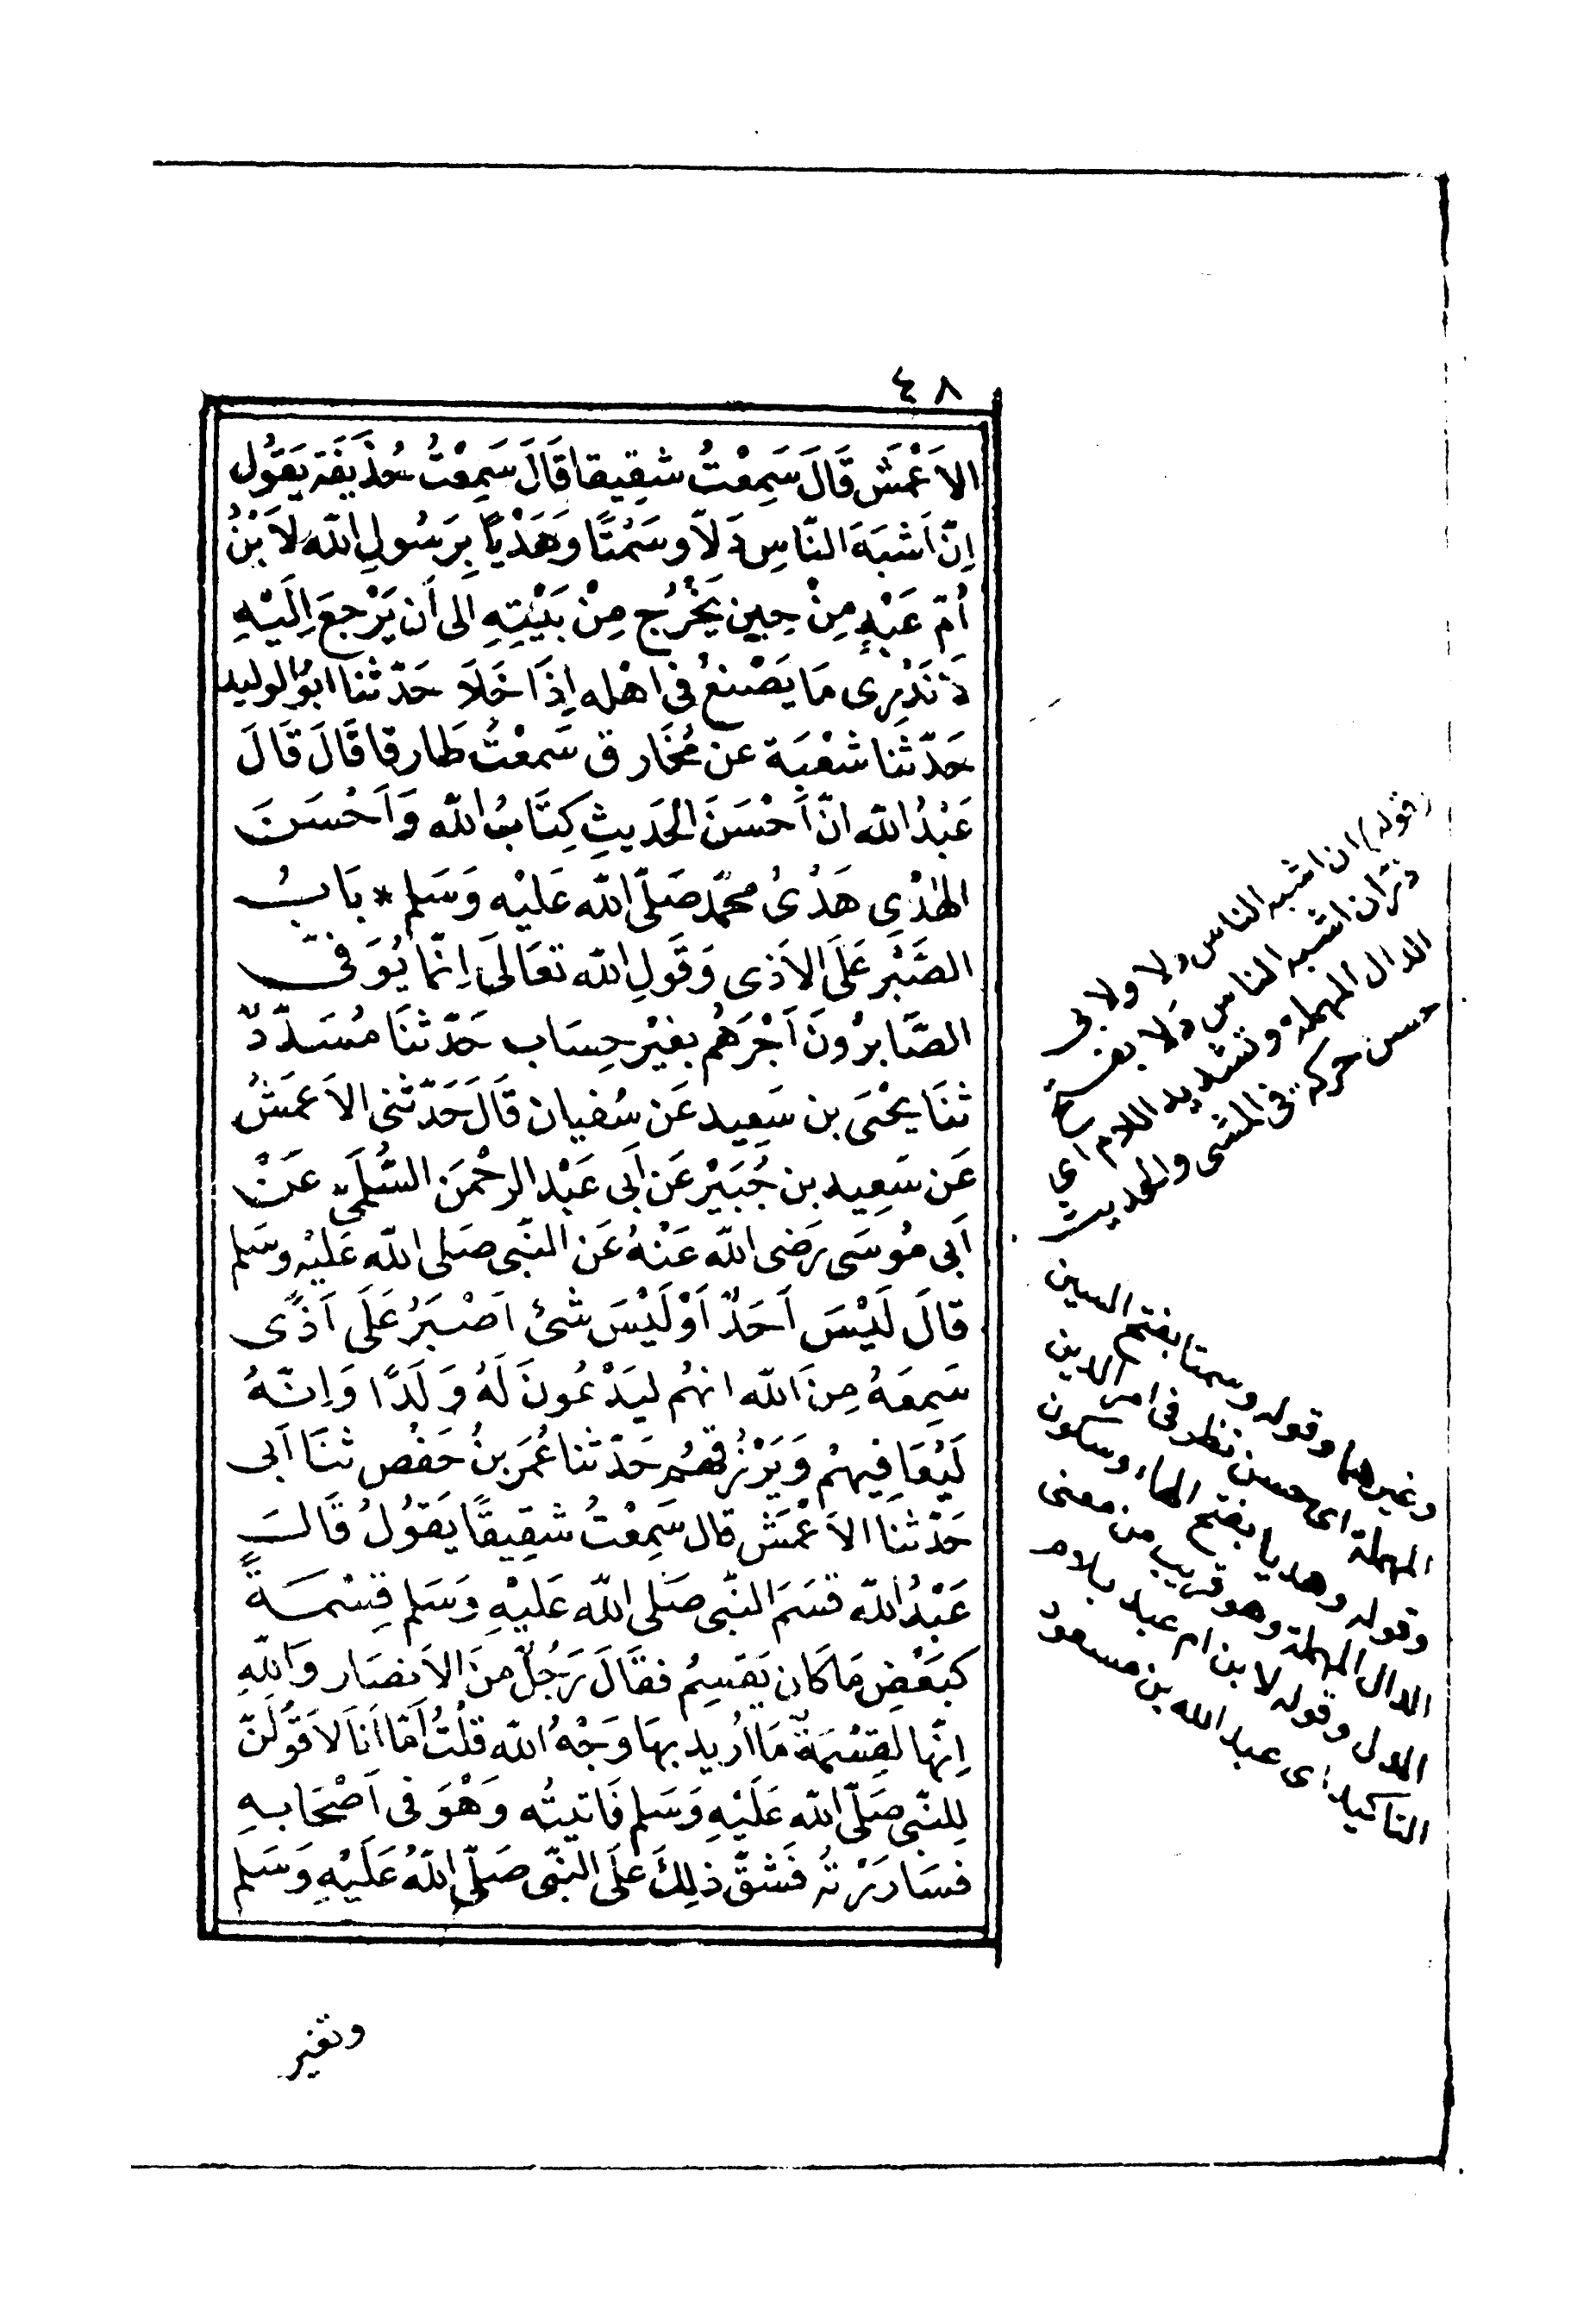 ٤٨
الاَعْمَش قَالَ سَمِعْتُ شقِيقا قَالَ سَمِعْتُ حُذَيفَة يَقُول
اِنّ اَشبَهَ النّاسِ دَلاًّ وسَمْتًا وَهَدْيًا بِرَسُولِ اللّه لاَ بْنُ
اُمّ عَبْدٍ مِنْ حِينِ يَخْرُج مِنْ بَيْتِهِ الى أن يَرْجعَ اِلَيْهِ
لاَ نَدْرِى مَا يَصْنعُ فى اهْله اِذَا خَلاَ حَدّثنا ابوُالوليد
حَدّثنا شعْبَة عن مُخَارق سَمعْتُ طَارقا قَالَ قَالَ
عَبْدُ اللّه انّ اَحْسَنَ الحَديثِ كِتَابُ اللّه وَاَحْسَنَ
الهَدْىِ هَدْىُ محمّد صَلّى اللّه عَليْه وَسَلم * بَابُ
الصَّبْر عَلَى الاَذى وَقَولِ اللّه تعَالَى اِنّمَا يُوَفىّ
الصَّابرُونَ اَجْرَهُم بغيْر حِسَاب حَدّثنَا مُسَدّدٌ
ثنَا يحْيَى بن سَعِيد عَن سُفيان قَالَ حَدّثنى الاَعمَشُ
عَن سَعِيد بن جُبَيْر عَن اَبى عَبْد الرحْمَن السُّلَمىّ عَنْ
اَبى مُوسَى رَضى اللّه عَنْهُ عَن النّبى صَلى اللّه عَليْه وسَلم
قالَ لَيْسَ اَحَدٌ اَوْ لَيْسَ شئ اَصْبَرُ عَلَى اَذًى
سَمِعَهُ مِنَ اللّه انهُم ليَدْعُونَ لَهُ وَلَدًا وَاِنّهُ
لَيُعَافِيهمْ وَيَرْزُقهُم حَدّثنا عُمَر بنُ حَفْص ثنَا اَبى
حَدّثنا الاَعْمَش قال سَمِعْتُ شقِيقًا يَقوُلُ قَالَ
عَبْدُ اللّه قسَمَ النّبى صَلى اللّه عَليْهِ وَسَلم قِسْمَةً
كبَعْضِ مَا كَان يَقسِمُ فقَالَ رَجُلٌ منَ الاَنصَار وَاللّهِ
اِنّها لقِسْمَةٌ مَا اُريد بهَا وَجْهُ اللّه قلْتُ اَمّا اَنا لاَ قُولَنّ
لِلنّبى صَلّى اللّه عَلَيْهِ وَسَلم فَاتيتُه وَهْوَ فى اَصْحَابهِ
فسَارَرْتهُ فَشقّ ذلِكَ عَلَى النّبى صَلّى اللّهُ عَلَيْهِ وَسَلم
(قوله) ان اشبه الناس دلا ولابى
ذرّ ان اشبه الناس دَلا بفتح
الدال المهملة وتشديد اللام اى
حسن حركة فى المشى والحديث
وغيرهما وقوله وسمتا بفتح السين
المهملة اى حسن نظر فى امر الدين
وقوله وهديا بفتح الهاء وسكون
الدال المهملة وهو قريب من معنى
الدل وقوله لابن ام عبد بلام
التاكيد اى عبد الله بن مسعود
وتغير